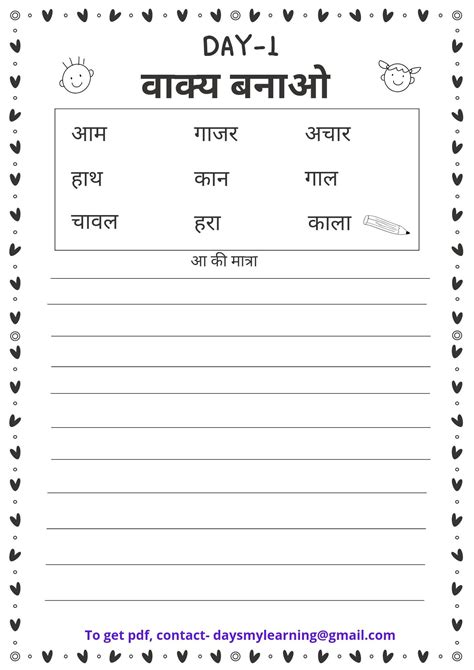 DAY-1
वाक्य बनाओ
आम गाजर अचार
हाथ कान गाल
चावल हरा काला
आ की मात्रा
To get pdf, contact- daysmylearning@gmail.com